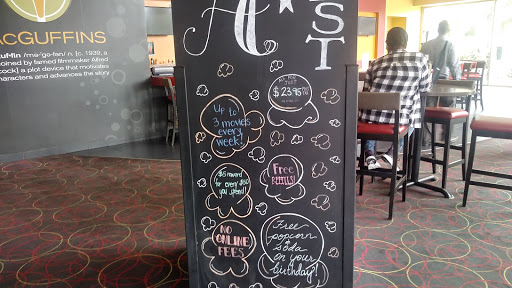 ACGUFFINS
uffin /mə-ˈgə-fən/ n. [c. 1939, a
oined by famed filmmaker Alfred
ock] a plot device that motivates
characters and advances the story.
A*
ST
$23.95
Up to
3 movies
every
week!
Free
REFILLS!
$5 reward
for every $50
you spend!
NO
ONLINE
FEES
Free
popcorn
+
soda
on your
birthday!